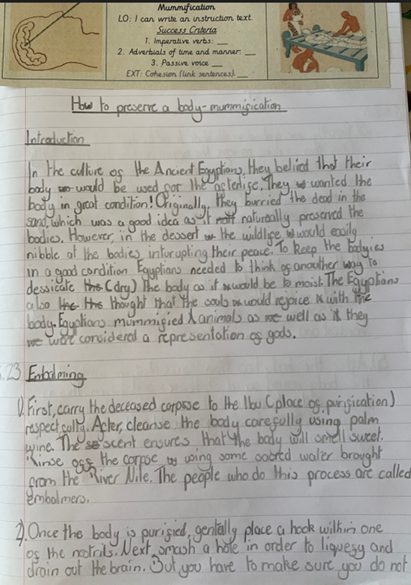 Mummification
LO: I can write an instruction text.
Success Criteria
1. Imperative verbs: __
2. Adverbials of time and manner: __
3. Passive voice __
EXT: Cohesion (link sentences). __
How to preserve a body - mummification
Introduction
In the culture of the Ancient Egyptians, they belied that their
body would be used for the afterlife. They wanted the
body in great condition! Originally, they burried the dead in the
sand, which was a good idea as it natureally preserved the
bodies. However, in the dessert the wildlife would easily
nibble at the bodies inturupting their peace. To keep the bodyies
in a good condition Egyptians needed to think of another way to
dessicate (dry) the body as it would be to moist. The Egyptians
also thought that the souls would rejoice with the
body. Egyptians mummified animals as well as it they
were considered a representation of gods.
.23 Embalming
1). First, carry the deceased corpse to the Ibu (place of purification)
respectfully. After, cleanse the body carefully using palm
wine. The scent ensures that the body will smell sweet.
Rinse off the corpse using some sacred water brought
from the River Nile. The people who do this process are called
embalmers.
2). Once the body is purified, gentally place a hook within one
of the nostrils. Next, smash a hole in order to liquefy and
drain out the brain. But you have to make sure you do not